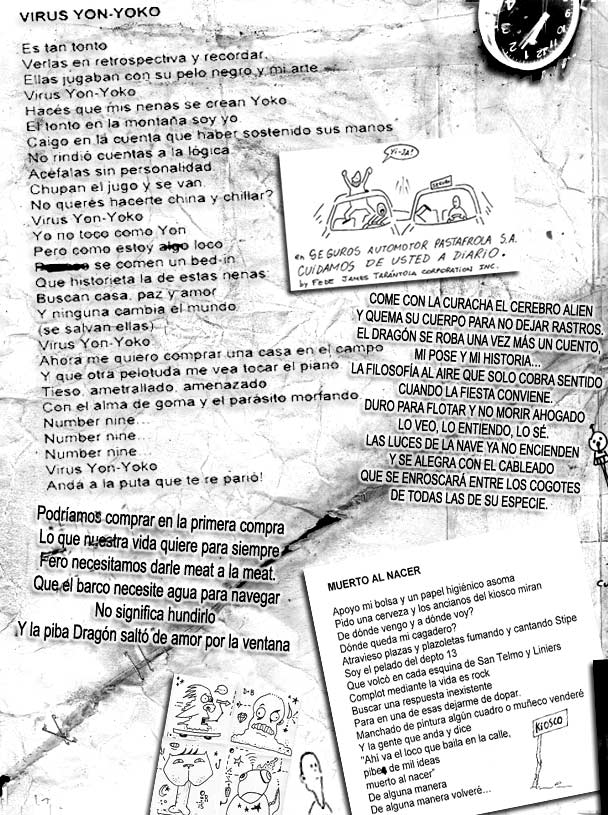 VIRUS YON-YOKO
Es tan tonto
Verlas en retrospectiva y recordar.
Ellas jugaban con su pelo negro y mi arte
Virus Yon-Yoko
Hacés que mis nenas se crean Yoko
El tonto en la montaña soy yo.
Caigo en la cuenta que haber sostenido sus manos
No rindió cuentas a la lógica
Acéfalas sin personalidad
Chupan el jugo y se van.
No querés hacerte china y chillar?
Virus Yon-Yoko
Yo no toco como Yon
Pero como estoy algo loco
se comen un bed-in
Que historieta la de estas nenas:
Buscan casa, paz y amor
Y ninguna cambia el mundo
(se salvan ellas)
Virus Yon-Yoko
Ahora me quiero comprar una casa en el campo
Y que otra pelotuda me vea tocar el piano
Tieso, ametrallado, amenazado
Con el alma de goma y el parásito morfando.
Number nine...
Number nine...
Number nine...
Virus Yon-Yoko
Andá a la puta que te re parió!
Yi-JA!
en SEGUROS AUTOMOTOR PASTAFROLA S.A.
CUIDAMOS DE USTED A DIARIO.
by FEDE JAMES TARÁNTOLA CORPORATION INC.
COME CON LA CURACHA EL CEREBRO ALIEN
Y QUEMA SU CUERPO PARA NO DEJAR RASTROS.
EL DRAGÓN SE ROBA UNA VEZ MÁS UN CUENTO,
MI POSE Y MI HISTORIA...
LA FILOSOFÍA AL AIRE QUE SOLO COBRA SENTIDO
CUANDO LA FIESTA CONVIENE.
DURO PARA FLOTAR Y NO MORIR AHOGADO
LO VEO, LO ENTIENDO, LO SÉ.
LAS LUCES DE LA NAVE YA NO ENCIENDEN
Y SE ALEGRA CON EL CABLEADO
QUE SE ENROSCARÁ ENTRE LOS COGOTES
DE TODAS LAS DE SU ESPECIE.
Podríamos comprar en la primera compra
Lo que nuestra vida quiere para siempre
Pero necesitamos darle meat a la meat.
Que el barco necesite agua para navegar
No significa hundirlo
Y la piba Dragón saltó de amor por la ventana
MUERTO AL NACER
Apoyo mi bolsa y un papel higiénico asoma
Pido una cerveza y los ancianos del kiosco miran
De dónde vengo y a dónde voy?
Dónde queda mi cagadero?
Atravieso plazas y plazoletas fumando y cantando Stipe
Soy el pelado del depto 13
Que volcó en cada esquina de San Telmo y Liniers
Complot mediante la vida es rock
Buscar una respuesta inexistente
Para en una de esas dejarme de dopar.
Manchado de pintura algún cuadro o muñeco venderé
Y la gente que anda y dice
"Ahí va el loco que baila en la calle,
pibe de mil ideas
muerto al nacer"
De alguna manera
De alguna manera volveré...
KIOSCO